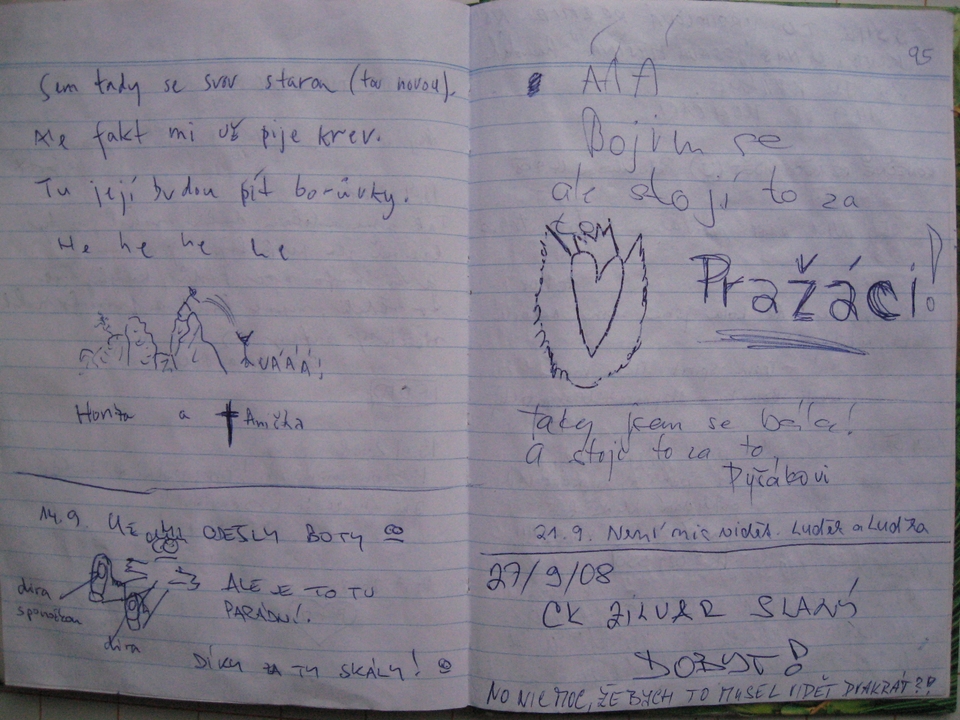 Sem tady se svou starou (tou novou).
Ale fakt mi už pije krev.
Tu její budou pít borůvky.
He he he he
UÁÁÁ!
Honza a Anička
14.9. UŽ ODEŠLY BOTY
díra
sponožkou
díra
ALE JE TO TU
PARÁDNÍ!
DÍKY ZA TY SKÁLY!
95
AAA
Bojím se
ale stojí to za
to
Pražáci!
Taky jsem se bála!
A stojí to za to,
21.9. Není nic vidět. Luděk a Luďka
27/9/08
CK ŽILVAR SLANÝ
DOBYT!
NO NIC MOC, ŽE BYCH TO MUSEL VIDĚT DVAKRÁT?!